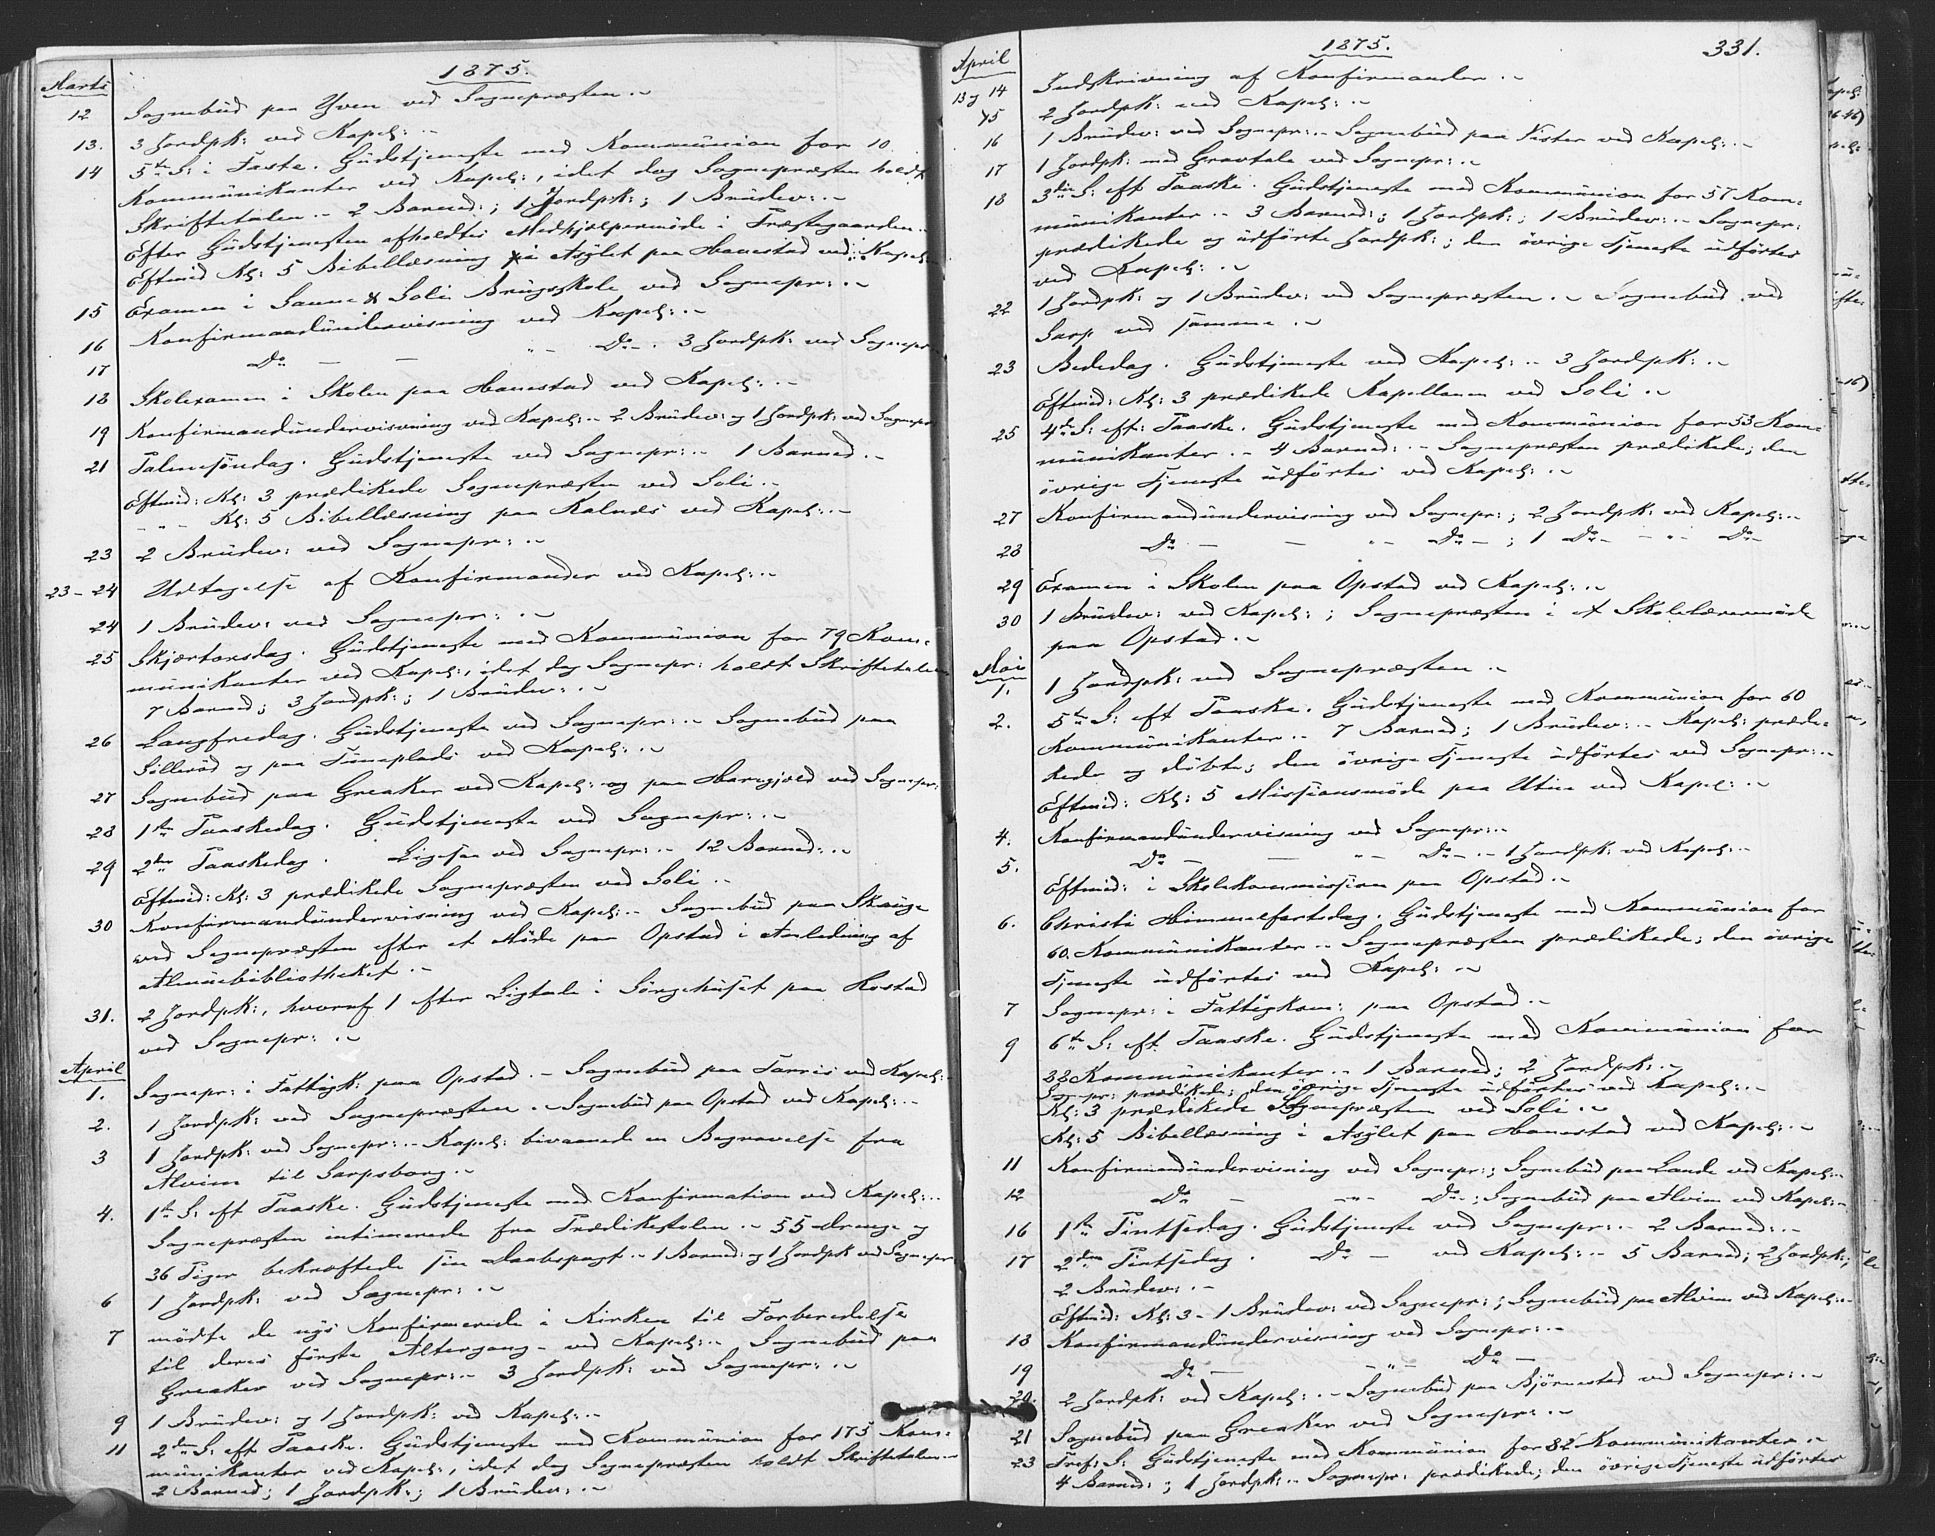 1875.
Marts
12 Sognebud paa Yven ved Sognepræsten.
13. 3 Jordpk: ved Kapel:
14 5te S: i Faste. Gudstjeneste med Kommunion for 10
Kommunikanter ved Kapel:, idet dog Sognepræsten holdt
Skriftetalen. 2 Barned:; 1 Jordpk:; 1 Brudev:
Efter Gudstjenesten afholdtes Medhjælpermöde i Præstegaarden.
Eftmid Kl: 5 Bibellæsning i Asylet paa Hanestad ved Kapel:
15 Examen i Sanne & Soli Brugsskole ved Sognepr:
16 Konfirmandundervisning ved Kapel:
17 Do — — " — Do — 3 Jordpk: ved Sognepr:
18 Skolexamen i Skolen paa Hanestad ved Kapel:
19 Konfirmandundervisning ved Kapel: 2 Brudev: og 1 Jordpk: ved Sognepr:
21 Palmesöndag. Gudstjeneste ved Sognepr: 1 Barned.
Eftmid: Kl: 3 prædikede Sognepræsten ved Soli.
— " — Kl: 5 Bibellæsning paa Kalnæs ved Kapel:
23 2 Brudev: ved Sognepr:
23-24 Udtagelse af Konfirmander ved Kapel:
24 1 Brudev: ved Sognepr:
25 Skjærtorsdag. Gudstjeneste med Kommunion for 79 Kom-
munikanter ved Kapel:, idet dog Sognepr: holdt Skriftetalen
7 Barned; 3 Jordpk:; 1 Brudev:
26 Langfredag. Gudstjeneste ved Sognepr: Sognebud paa
Sölleröd og paa Tömeplads ved Kapel:
27 Sognebud paa Greaker ved Kapel: og paa Haregjeld ved Sognepr:
28 1ste Paaskedag. Gudstjeneste ved Sognepr:
29 2den Paaskedag. Ligesaa ved Sognepr: 12 Barned:
Eftmid: Kl: 3 prædikede Sognepræsten ved Soli.
30 Konfirmandundervisning ved Kapel: Sognebud paa Skauge
ved Sognepræsten efter et Möde paa Opstad i Anledning af
Almuebibliotheket.
31. 2 Jordpk:, hvoraf 1 efter Ligtale i Sörgehuset paa Hostad
ved Sognepr:
April
1. Sognepr: i Fattigk: paa Opstad. Sognebud paa Tarris ved Kapel:
2. 1 Jordpk: ved Sognepræsten. Sognebud paa Opstad ved Kapel:
3 1 Jordpk: ved Sognepr: Kapel: bivaanede en Begravelse fra
Alvim til Sarpsborg.
4. 1ste S: eft Paaske. Gudstjeneste med Konfirmation ved Kapel:
Sognepræsten intimerede fra Prædikestolen. 55 drenge og
36 Piger bekræftede sin Daabspagt. 1 Barned: og 1 Jordpk ved Sognepr:
6 1 Jordpk: ved Sognepr:
7 mödte de nys Konfirmerede i Kirken til Forberedelse
til deres förste Altergang ved Kapel: Sognebud paa
Greaker ved Sognepr: 3 Jordpk: ved Sognepr:
9 1 Brudev: og 1 Jordpk: ved Kapel:
11 2den S: eft Paaske. Gudstjeneste med Kommunion for 175 Kom-
munikanter ved Kapel:, idet dog Sognepræsten holdt Skriftetalen
2 Barned; 1 Jordpk:; 1 Brudev:
1875.
331.
April
13 og 14 Indskrivning af Konfirmander.
15 2 Jordpk: ved Kapel:
16 1 Brudev: ved Sognepr: Sognebud paa Vister ved Kapel:
17 1 Jordpk: med Gravtale ved Sognepr:
18 3die S: eft Paaske. Gudstjeneste med Kommunion for 57 Kom-
munikanter. 3 Barned:; 1 Jordpk:; 1 Brudev: Sognepr:
prædikede og udförte Jordpk:; den övrige Tjeneste udförtes
ved Kapel:
22 1 Jordpk: og 1 Brudev: ved Sognepræsten. Sognebud ved
Sarp ved samme.
23 Bededag. Gudstjeneste ved Kapel: 3 Jordpk:
Eftmid: Kl: 3 prædikede Kapellanen ved Soli.
25 4de S: eft: Paaske. Gudstjeneste med Kommunion for 53 Kom-
munikanter. 4 Barned: Sognepræsten prædikede; den
övrige Tjeneste udförtes ved Kapel:
27 Konfirmandundervisning ved Sognepr:; 2 Jordpk: ved Kapel:
28 Do — — " — Do —; 1 Do — " — Do —
29 Examen i Skolen paa Opstad ved Kapel:
30 1 Brudev: ved Kapel:; Sognepræsten i et Skolelærermöde
paa Opstad.
Mai
1. 1 Jordpk: ved Sognepræsten
2. 5te S: eft Paaske. Gudstjeneste med Kommunion for 60
Kommunikanter. 7 Barned; 1 Brudev: Kapel: prædi-
kede og döbte; den övrige Tjeneste udförtes ved Sognepr:
Eftmid: Kl: 5 Missionsmöde paa Utne ved Kapel:
4. Konfirmandundervisning ved Sognepr:
5. Do — — " — Do — 1 Jordpk: ved Kapel:
Eftmid: i Skolekommission paa Opstad.
6. Christi Himmelfartsdag. Gudstjeneste med Kommunion for
60. Kommunikanter. Sognepræsten prædikede; den övrige
Tjeneste udförtes ved Kapel:
7 Sognepr: i Fattigkom: paa Opstad.
9 6te S: eft Paaske. Gudstjeneste med Kommunion for
32 Kommunikanter. 1 Barned; 2 Jordpk:
Sognepr: prædikede; den övrige Tjeneste udförtes ved Kapel:
Kl: 3 prædikede Sognepræsten ved Soli.
Kl: 5 Bibellæsning i Asylet paa Hanestad ved Kapel:
11 Konfirmandundervisning ved Sognepr:; Sognebud paa Lande ved Kapel:
12 Do — — " — Do —; Sognebud paa Alvim ved Kapel:
16 1ste Pintsedag. Gudstjeneste ved Sognepr: 2 Barned:
17 2den Pintsedag. Do — ved Kapel: 5 Barned; 2 Jordpk:;
2 Brudev:
Eftmid: Kl: 3 - 1 Brudev: ved Sognepr:; Sognebud paa Alvim ved Kapel:
18 Konfirmandundervisning ved Sognepr:
19 Do — — " — Do —
20. 2 Jordpk: ved Kapel: Sognebud paa Björnestad ved Sognepr:
21 Sognebud paa Greaker ved Sognepr:
23 Tref: S: Gudstjeneste med Kommunion for 82 Kommunikanter
4 Barned:; 1 Jordpk: Sognepr: prædikede; den övrige Tjeneste udförtes